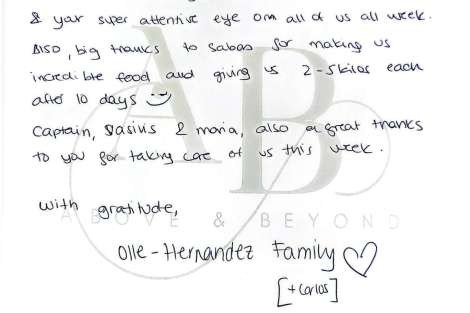 & your super attentive eye on all of us all week.
Also, big thanks to Sabas for making us
incredible food and giving us 2-5 kilos each
after 10 days :)
Captain, Sasius & maria, also a great thanks
to you for taking care of us this week.
with gratitude,
ABOVE & BEYOND
Olle-Hernandez Family ♡
[+ Carlos]